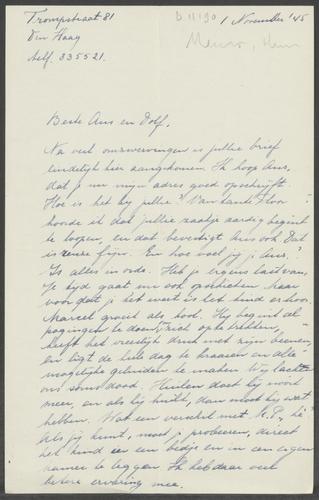 Trompstraat 81
Den Haag
Telf. 335521.
1 November '45
Beste Ans en Dolf,
Na veel omzwervingen is jullie brief
eindelijk hier aangekomen. Ik hoop Ans,
dat je nu mijn adres goed opschrijft.
Hoe is het bij jullie? Van tante
hoorde ik dat jullie zaakje aardig begint
te loopen, en dat bevestigt Ans ook. Dat
is reuze fijn. En hoe voel jij je Ans?
Is alles in orde. Heb je ergens last van.
Je tijd gaat nu ook opschieten haar
voor dat je het weet is het kind er hoor.
Marcel groeit als kool. Hij begint al
pogingen te doen, zich op te trekken,
heeft het vreeselijk druk met zijn beenen,
en ligt de hele dag te kraaien en alle
mogelijke geluiden te maken. Wij lachen
ons soms dood. Huilen doet hij nooit
meer, en als hij huilt, dan moet hij wat
hebben. Wat een verschil met R.P., hè
als jij kunt, moet je probeeren, direct
het kind in een bedje en in een eigen
kamer te leggen. Ik heb daar veel
betere ervaring mee.